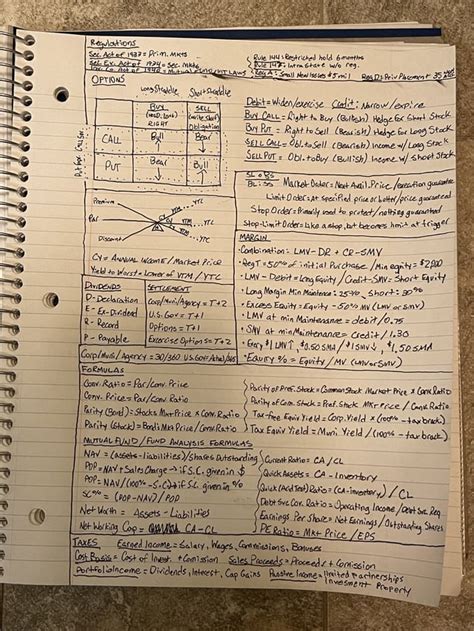 Regulations
Sec. Act of 1933 = Prim. Mkts
Sec. Ex. Act of 1934 = Sec. mkts
Act of 1940 = Mutual Fund / INT LAWS
Rule 144: Restricted hold 6 months
Rule 147: Intrastate w/o reg.
Reg A: Small New issues
Reg D: Priv Placement 35
OPTIONS
Long Straddle Short Straddle
BUY
RIGHT
SELL
Obligation
CALL Bull Bear
PUT Bear Bull
Debit = Widen/exercise Credit: Narrow/expire
BUY CALL = Right to Buy (Bullish) Hedge for Short Stock
BUY PUT = Right to Sell (Bearish) Hedge for Long Stock
SELL CALL = Obl. to Sell (Bearish) Income w/ Long Stock
SELL PUT = Obl. to Buy (Bullish) Income w/ Short Stock
Premium
Par
Discount
CY YTM YTC
CY = Annual Income / Market Price
Yield to Worst = Lower of YTM / YTC
Market Order = Next Avail. Price / execution guarantee
Limit Order = At specified price or better / price guaranteed
Stop Order = Primarily used to protect / nothing guaranteed
Stop-Limit Order = Like a stop, but becomes limit at trigger
MARGIN
·Combination: LMV - DR + CR - SMV
·Reg T = 50% of initial Purchase / Min equity = $2,000
·LMV - Debit = Long Equity / Credit - SMV = Short Equity
·Long Margin Min Maintenance = 25%, Short = 30%
·Excess Equity = Equity - 50% MV (LMV or SMV)
·LMV at min Maintenance = debit / 0.75
·SMV at min Maintenance = Credit / 1.30
·Equity % = Equity / MV (LMV or SMV)
DIVIDENDS
D - Declaration
E - Ex-Dividend
R - Record
P - Payable
SETTLEMENT
Corp/Muni/Agency = T+2
U.S. Gov = T+1
Options = T+1
Exercise Options = T+2
Corp/Muni/Agency = 30/360 U.S. Gov = Actual/365
FORMULAS
Conv. Ratio = Par / Conv. Price
Conv. Price = Par / Conv. Ratio
Parity (Bond) = Stocks Mkt Price x Conv. Ratio
Parity (Stock) = Bonds Mkt Price / Conv. Ratio
Parity of Pref. Stock = Common Stock Market Price x Conv. Ratio
Parity of Com. Stock = Pref. Stock Mkt Price / Conv. Ratio
Tax-free Equiv Yield = Corp. Yield x (100% - tax brack)
Tax Equiv Yield = Muni. Yield / (100% - tax brack.)
MUTUAL FUND / FUND ANALYSIS FORMULAS
NAV = (assets - liabilities) / Shares Outstanding
POP = NAV + Sales Charge → if S.C. given in $
POP = NAV / (100% - S.C.) → if S.C. given in %
SC% = (POP - NAV) / POP
Net Worth = Assets - Liabilities
Net Working Cap = CA - CL
Current Ratio = CA / CL
Quick Assets = CA - Inventory
Quick (Acid Test) Ratio = (CA - inventory) / CL
Debt Svc Cov. Ratio = Operating Income / Debt Svc. Req
Earnings Per Share = Net Earnings / Outstanding Shares
PE Ratio = Mkt Price / EPS
TAXES Earned Income = Salary, Wages, Commissions, Bonuses
Cost Basis = Cost of Invest. + Comission Sales Proceeds = Proceeds - Comission
Portfolio Income = Dividends, Interest, Cap Gains Passive Income = Limited Partnerships
Invesment Property